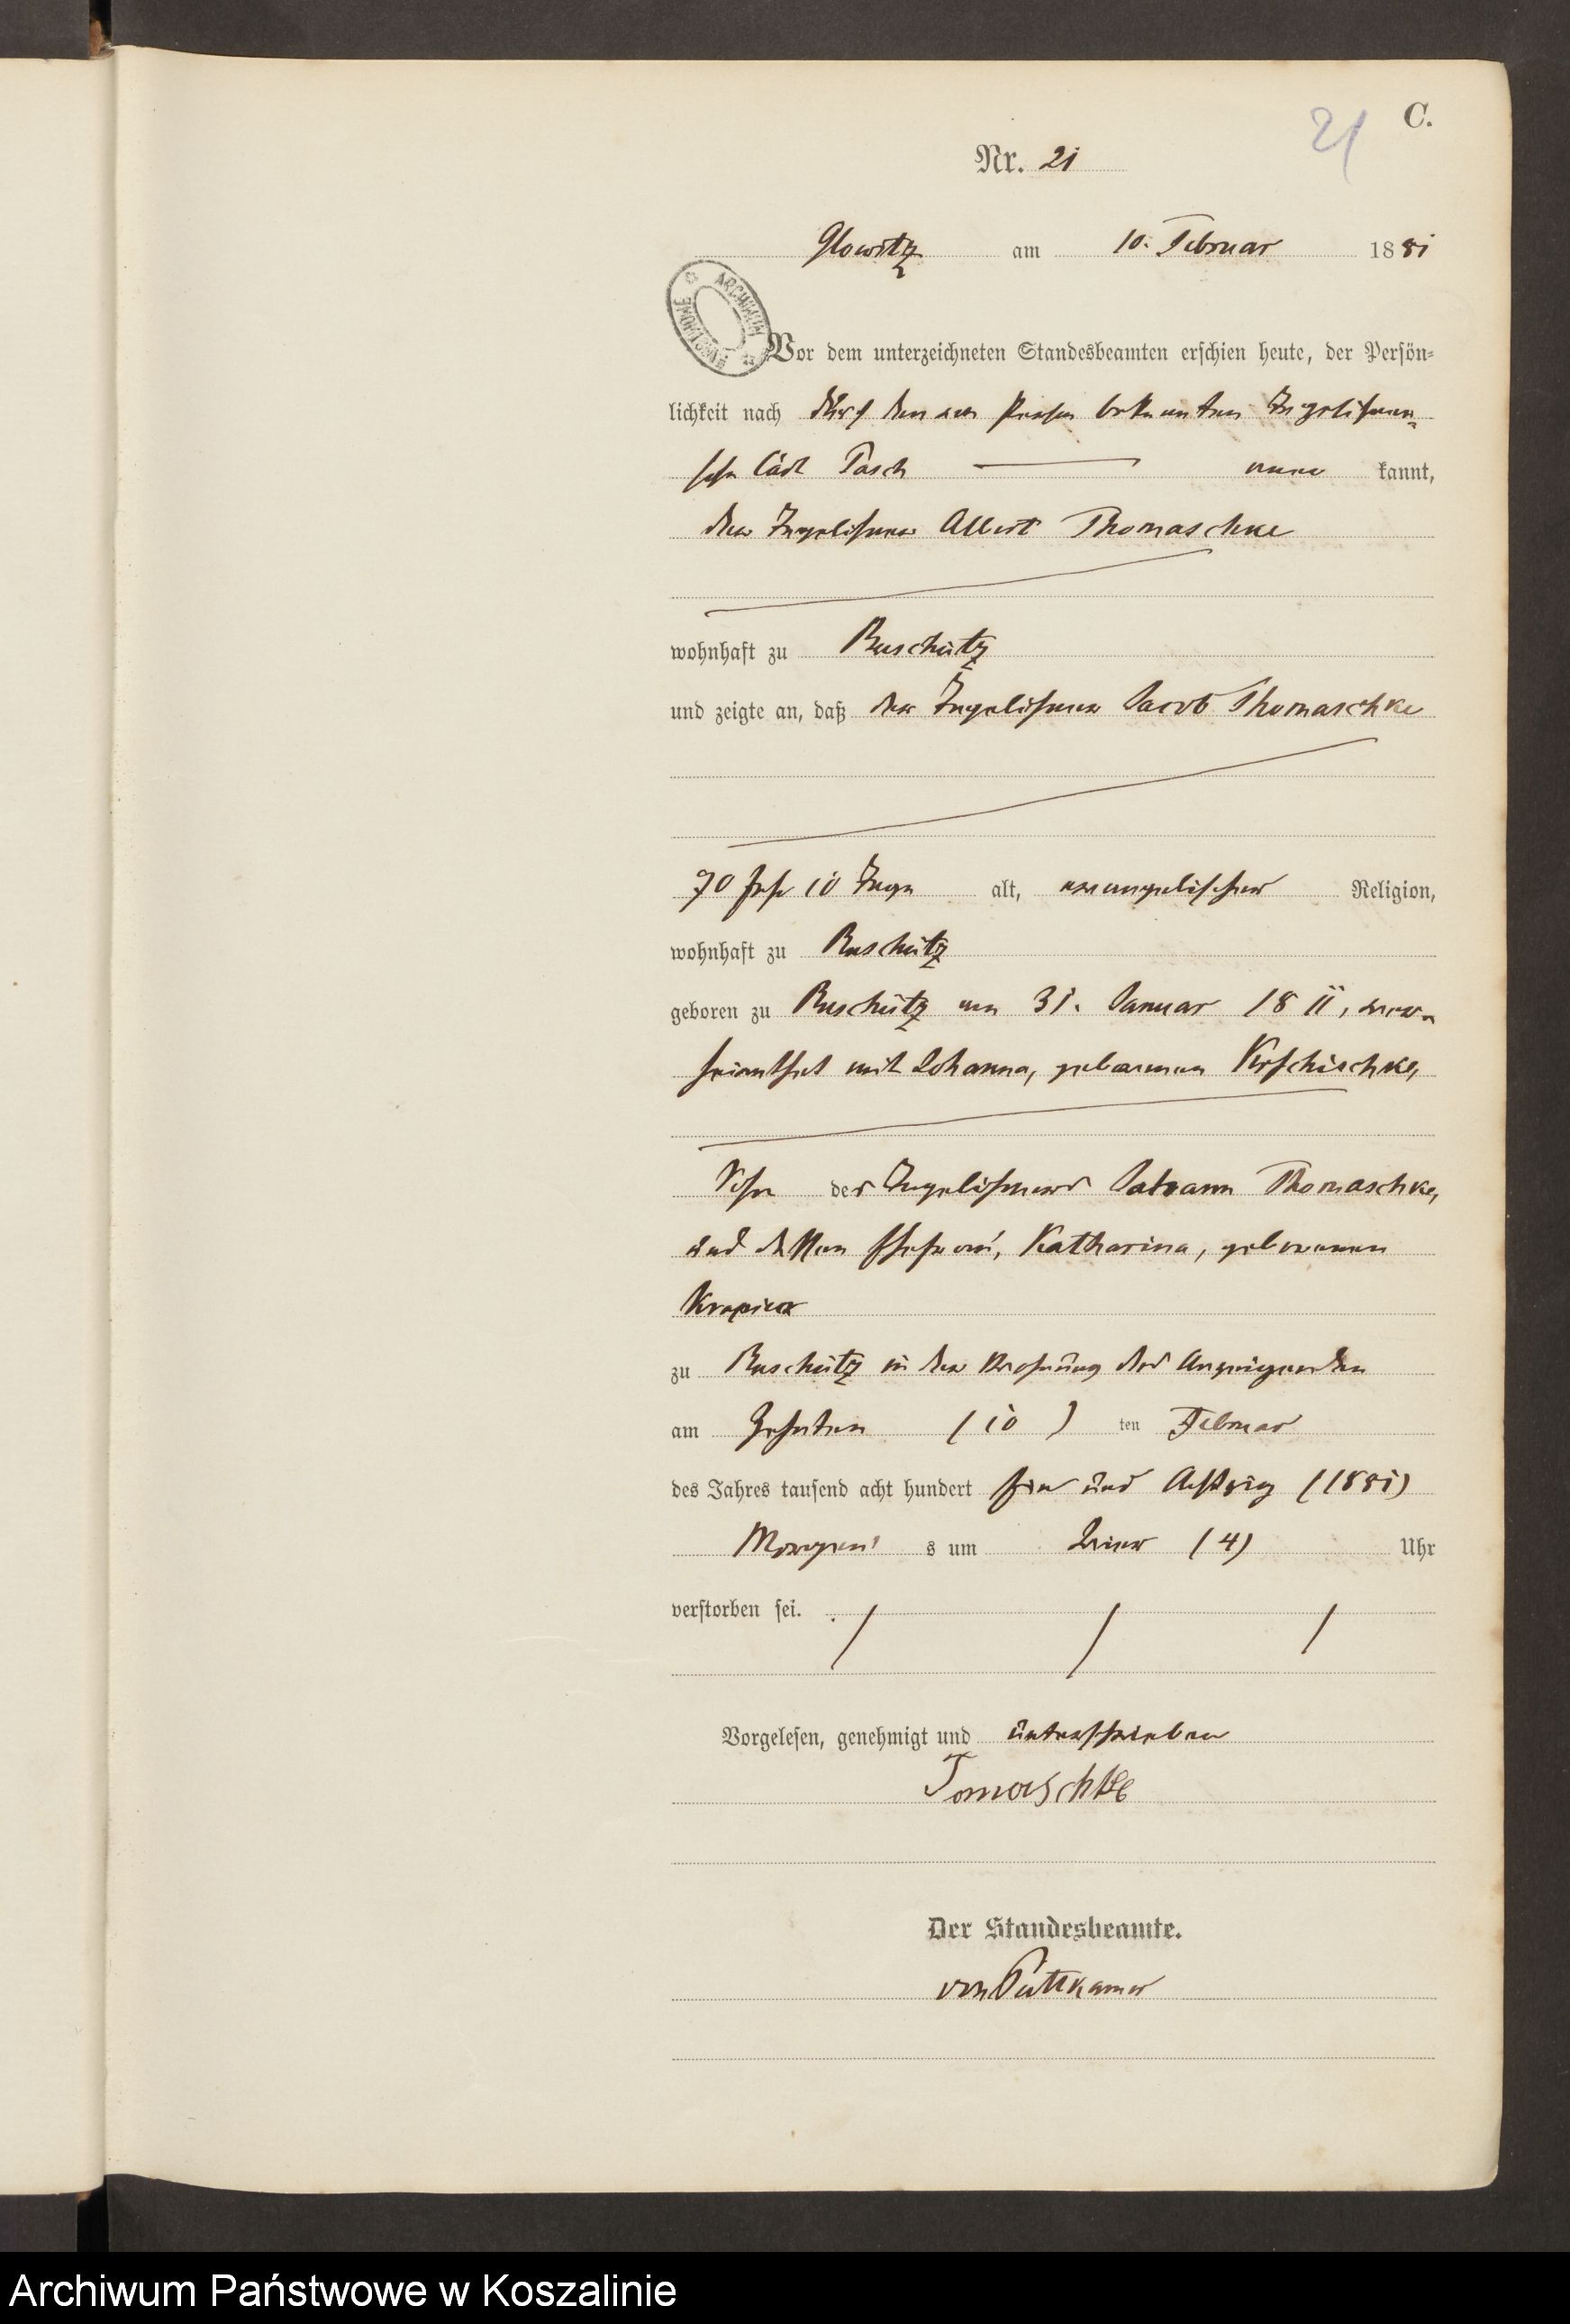 C.
21
Nr. 21
Glowitz am 10. Februar 1881
ARCHIWUM PAŃSTWOWE
Vor dem unterzeichneten Standesbeamten erschien heute, der Persön-
lichkeit nach durch den von Person bekannten Tagelöhner
Pasch aner kannt,
der Tagelöhner Albert Thomaschke
wohnhaft zu Ruschütz
und zeigte an, daß der Tagelöhner Jacob Thomaschke
70 Jahr 10 Tage alt, evangelischer Religion,
wohnhaft zu Ruschütz
geboren zu Ruschütz am 31. Januar 1811, ver-
heirathet mit Johanna, geborenen
Sohn des Tagelöhners Thomaschke,
und dessen Ehefrau, Katharina, geborenen
zu Ruschütz in der Wohnung des Anzeigenden
am Zehnten (10) ten Februar
des Jahres tausend acht hundert ein und Achtzig (1881)
Morgens s um Vier (4) Uhr
verstorben sei.
Vorgelesen, genehmigt und unterschrieben
Tomaschke
Der Standesbeamte.
von Puttkamer
Archiwum Państwowe w Koszalinie